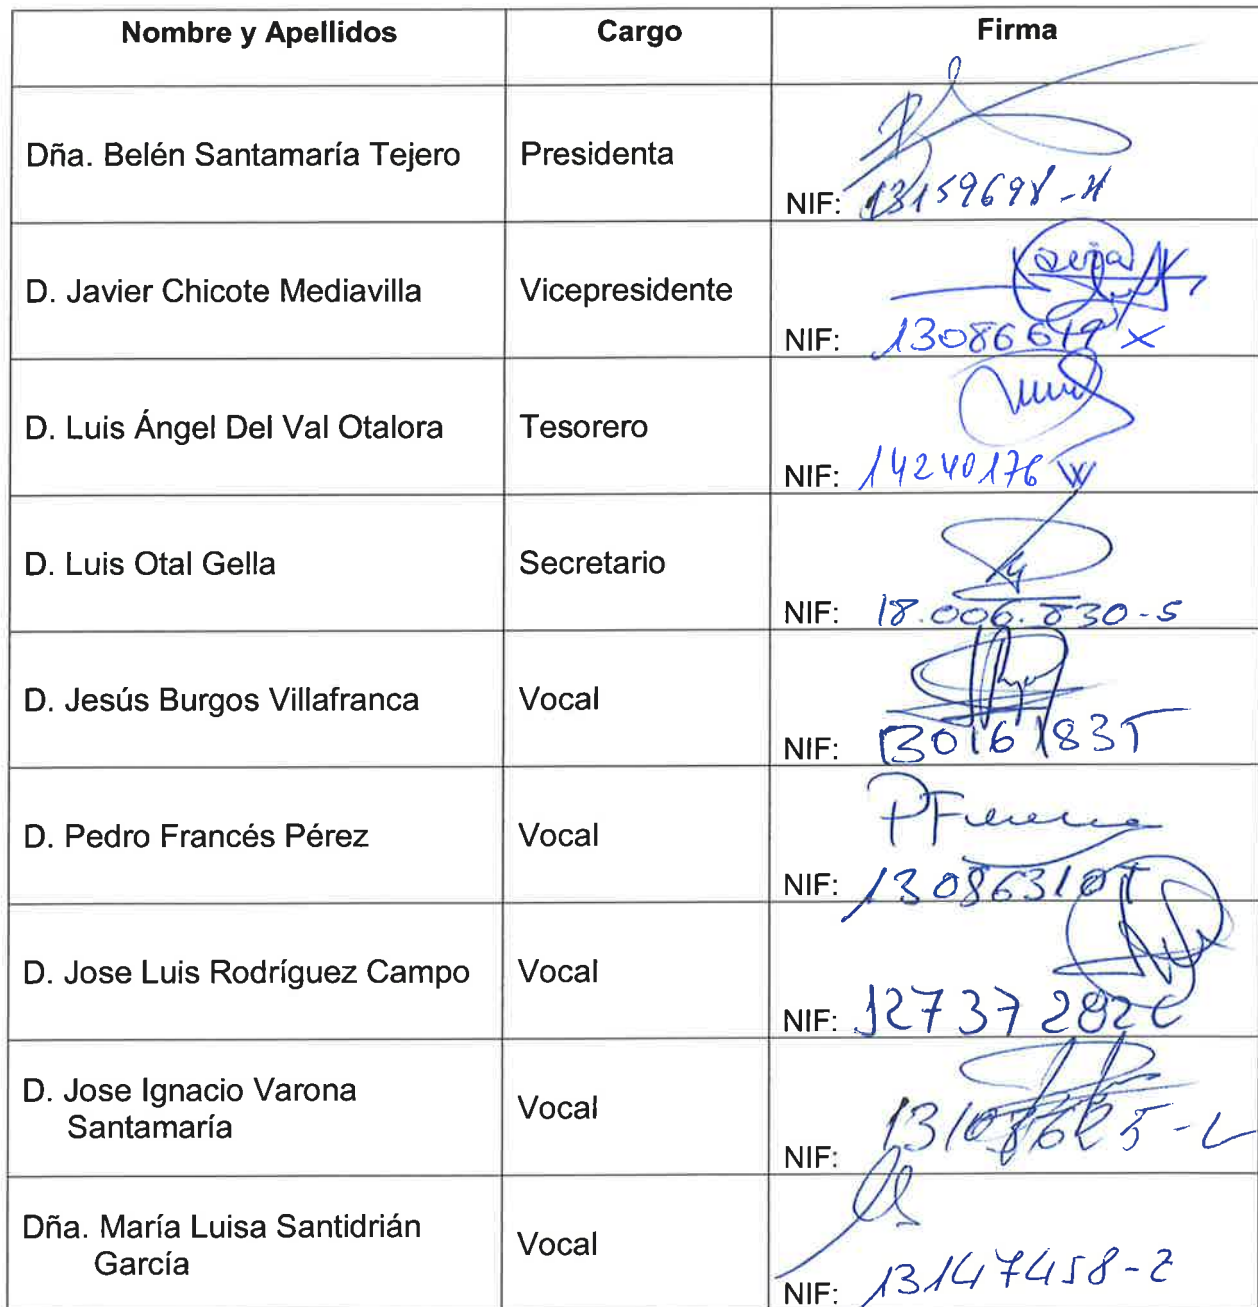 Nombre y Apellidos Cargo Firma
Dña. Belén Santamaría Tejero Presidenta
NIF: 13159698-H
D. Javier Chicote Mediavilla Vicepresidente
NIF: 13086619 X
D. Luis Ángel Del Val Otalora Tesorero
NIF: 14240176 W
D. Luis Otal Gella Secretario
NIF: 18.006.830-S
D. Jesús Burgos Villafranca Vocal
NIF: 13016183T
D. Pedro Francés Pérez Vocal
NIF: 13086310T
D. Jose Luis Rodríguez Campo Vocal
NIF: 12737282C
D. Jose Ignacio Varona
Santamaría
Vocal
NIF:
Dña. María Luisa Santidrián
García
Vocal
NIF: 13147458-Z